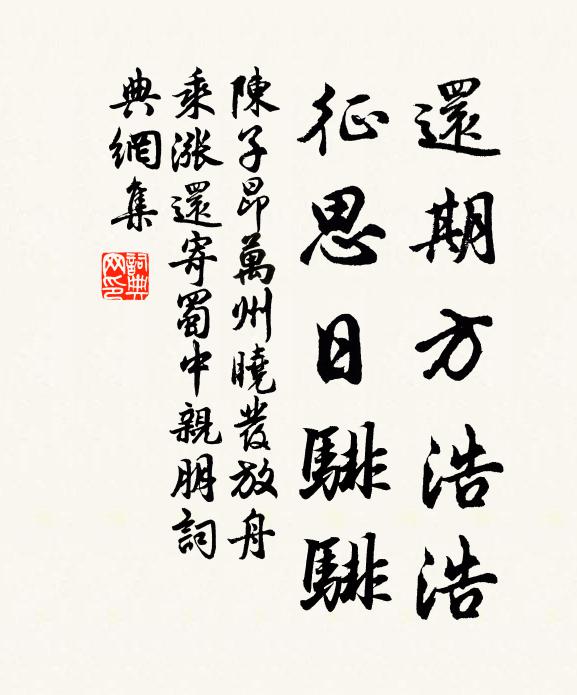 還期方浩浩
征思日騑騑
陳子昂萬州曉發放舟
乘漲還寄蜀中親朋詞
典網集
詞典网印